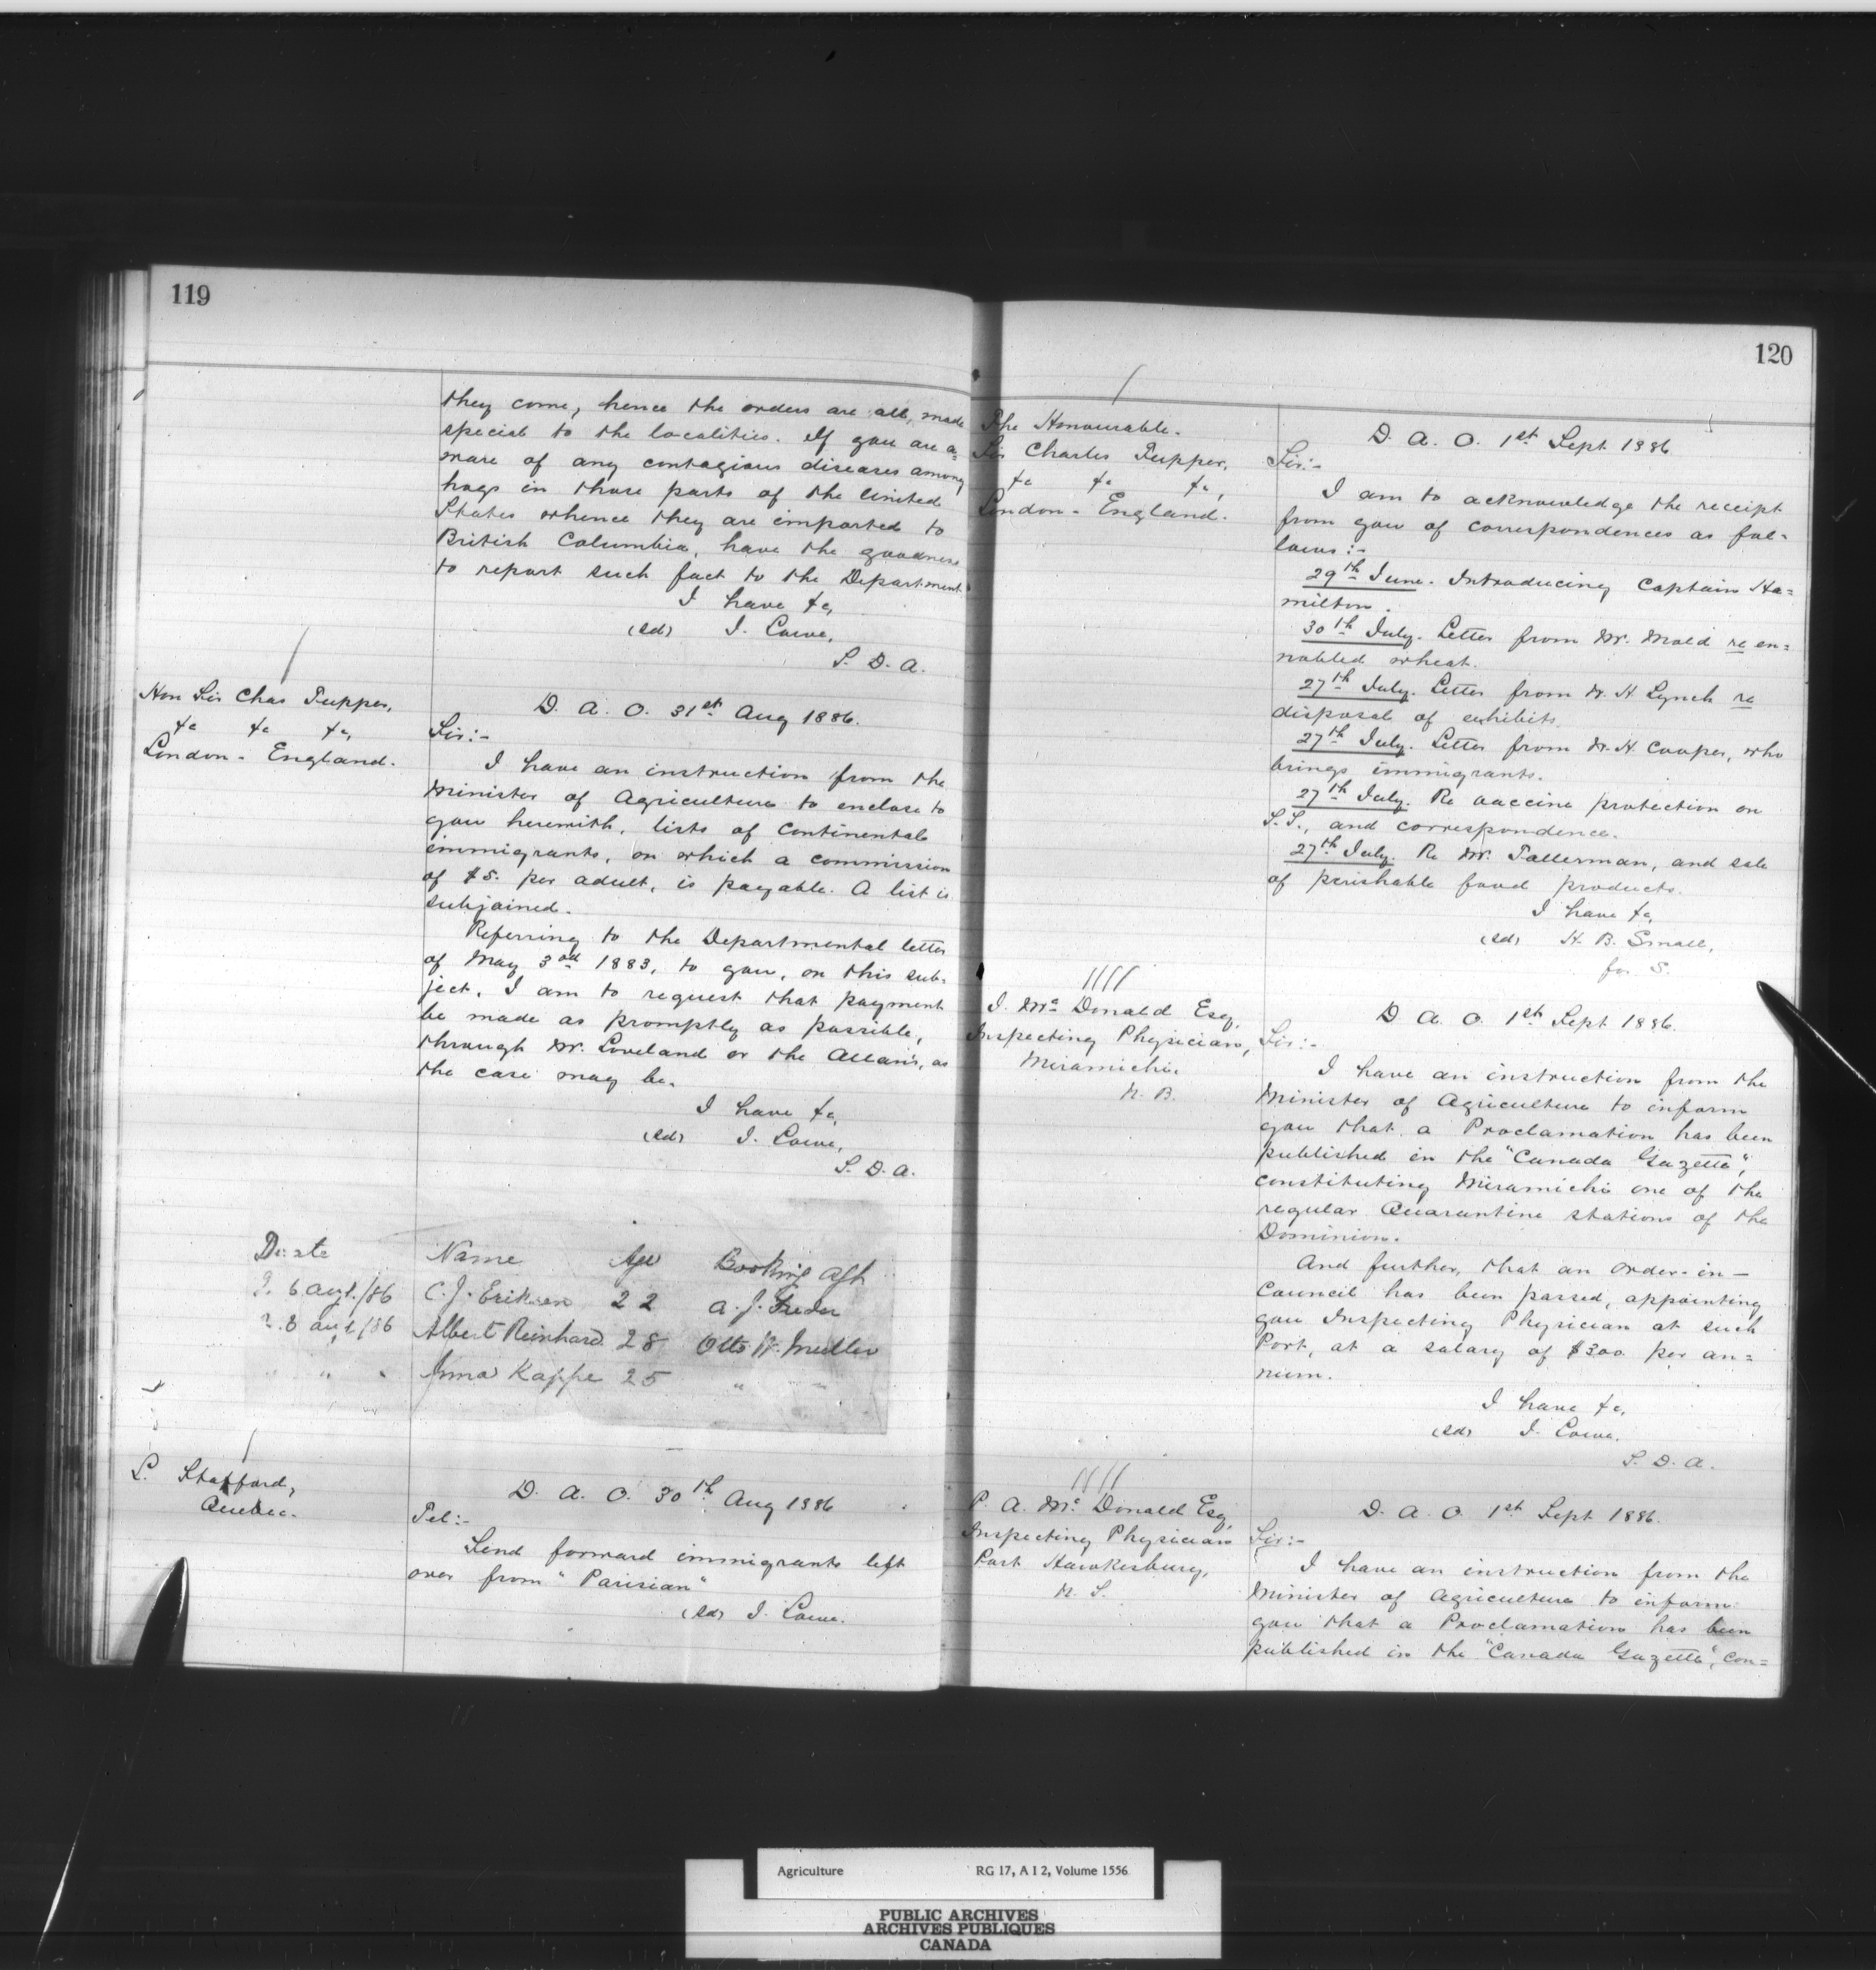 119
they come, hence the orders are all, made
special to the localities. If you are a=
ware of any contagious diseases among
hogs in those parts of the United
States whence they are imported to
British Columbia, have the goodness
to report such fact to the Department
I have &c,
(sd) J. Lowe,
S. D. A.
Hon Sir Chas Tupper,
&c &c &c,
London - England.
D. A. O. 31st Aug 1886.
Sir:-
I have an instruction from the
Minister of Agriculture to enclose to
you herewith, lists of Continental
immigrants, on which a commission
of $5. per adult, is payable. A list is
subjoined.
Referring to the Departmental letter
of May 3rd 1883, to you, on this sub-
ject, I am to request that payment
be made as promptly as possible,
through Mr. Loveland or the Allan's, as
the case may be.
I have &c,
(sd) J. Lowe,
S. D. A.
Date Name Age Booking Agt
6 augt./86 C. J. Eriksen 22 A. J.
8 augt/86 Albert Reinhard 28 Otto W. Muller
" " Kappe 25 " "
L. Stafford,
Quebec.
D. A. O. 30th Aug 1886
Tel:-
Send forward immigrants left
over from "Parisian"
(sd) J. Lowe.
120
The Honourable.
Sir Charles Tupper,
&c &c &c,
London - England.
D. A. O. 1st Sept 1886
Sir:-
I am to acknowledge the receipt
from you of correspondences as fol-
lows:-
29th June. Introducing Captain Ha=
milton.
30th July. Letter from Mr. Mold re en=
nobled wheat.
27th July. Letter from W. H. Lynch re
disposal of exhibits
27th July. Letter from W. H. Cooper, who
brings immigrants.
27th July. Re vaccine protection on
S.S., and correspondence.
27th July. Re Mr. Tallerman, and sale
of perishable food products.
I have &c,
(sd) H. B. Small,
for S.
J. McDonald Esq,
Inspecting Physician,
Miramichi.
N. B.
D. A. O. 1st Sept 1886.
Sir:-
I have an instruction from the
Minister of Agriculture to inform
you that a Proclamation has been
published in the "Canada Gazette",
constituting Miramichi one of the
regular Quarantine stations of the
Dominion.
And further, that an order-in-
Council has been passed, appointing
you Inspecting Physician at such
Port, at a salary of $300 per an=
num.
I have &c,
(sd) J. Lowe.
S. D. A.
P. A. McDonald Esq,
Inspecting Physician
Port Hawkesbury,
N. S.
D. A. O. 1st Sept 1886.
Sir:-
I have an instruction from the
Minister of Agriculture to inform
you that a Proclamation has been
published in the "Canada Gazette", con=
Agriculture RG 17, A I 2, Volume 1556
PUBLIC ARCHIVES
ARCHIVES PUBLIQUES
CANADA